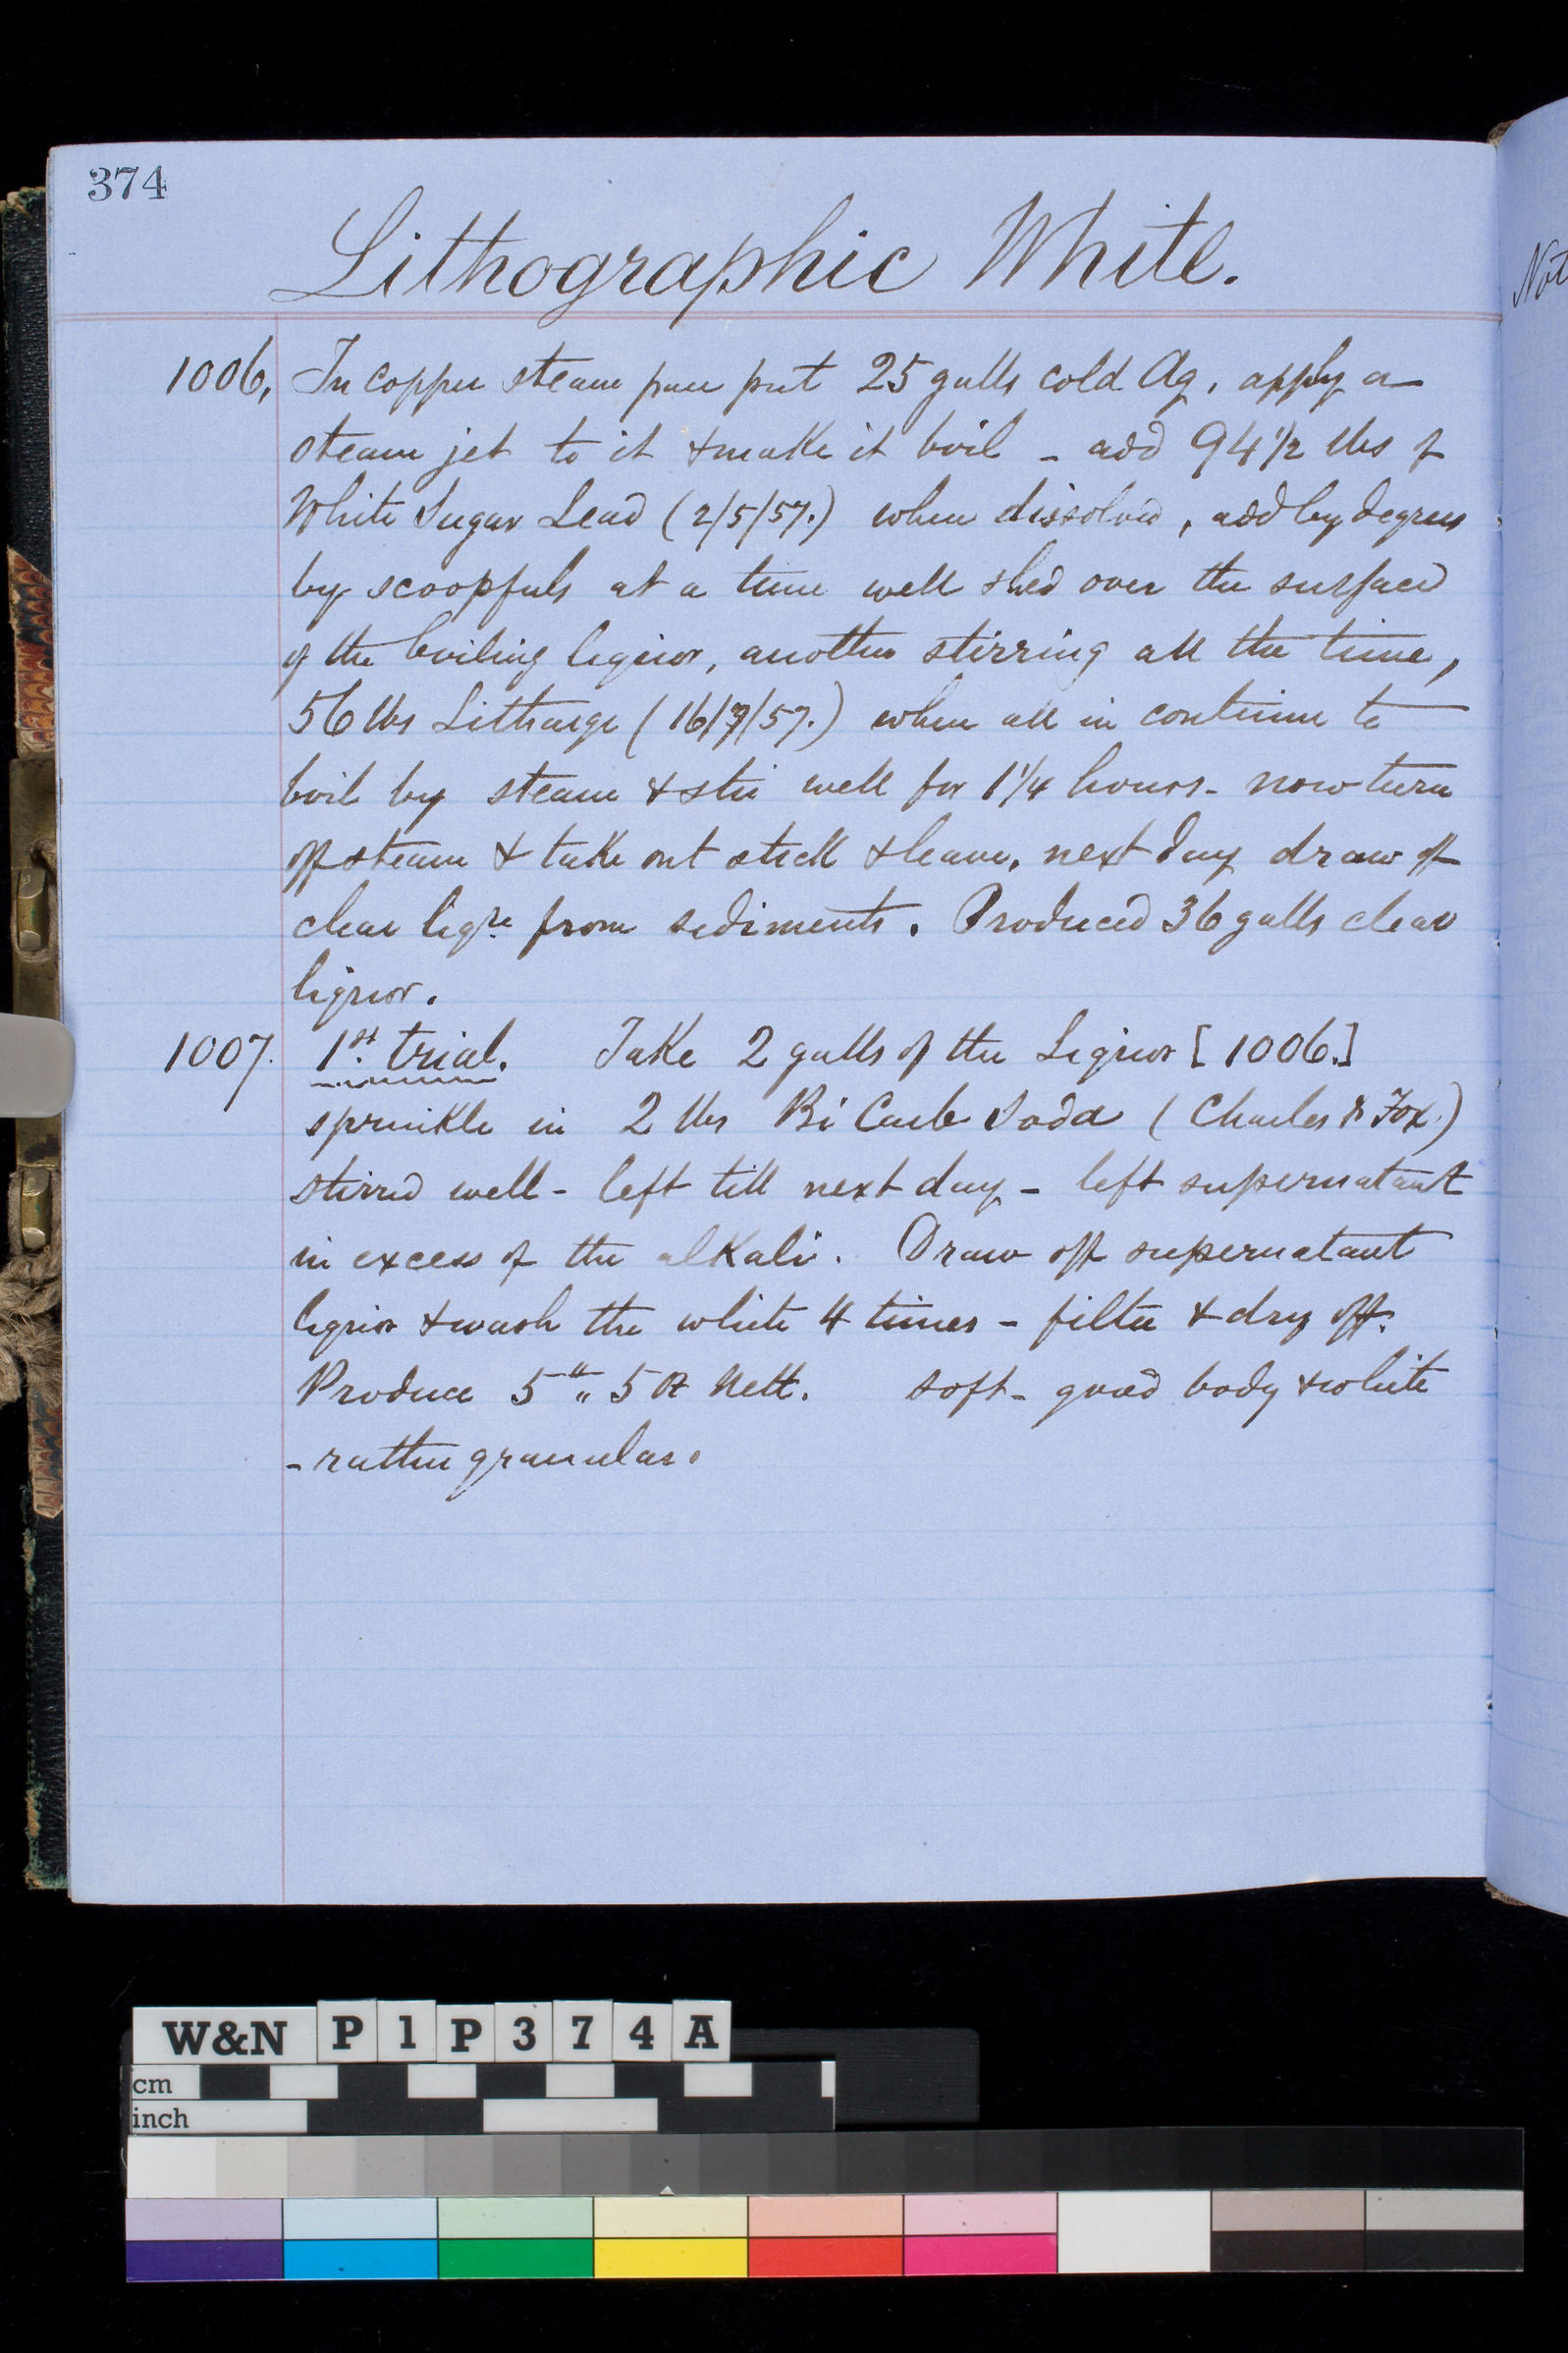 374
Lithographic White.
1006, In copper steam pan put 25 galls cold Aq, apply a
steam jet to it & make it boil - add 94 1/2 lbs of
White Sugar Lead (2/5/57.) when dissolved, add by degrees
by scoopfuls at a time well shed over the surface
of the boiling liquor, another stirring all the time,
56 lbs Litharge (16/7/57.) when all in continue to
boil by steam & stir well for 1 1/4 hours - now turn
off steam & take out stick & leave, next day draw off
clear liqre from sediments. Produced 36 galls clear
liquor.
1007. 1st trial. Take 2 galls of the Liquor [1006.]
sprinkle in 2 lbs Bi Carb Soda (Charles & Fox)
stirred well - left till next day - left supernatant
in excess of the alkali. Draw off supernatant
liquor & wash the white 4 times - filter & dry off.
Produce 5 lb " 5 oz nett. soft - good body & white
- rather granular.
Not
W&N P1P374A
cm
inch